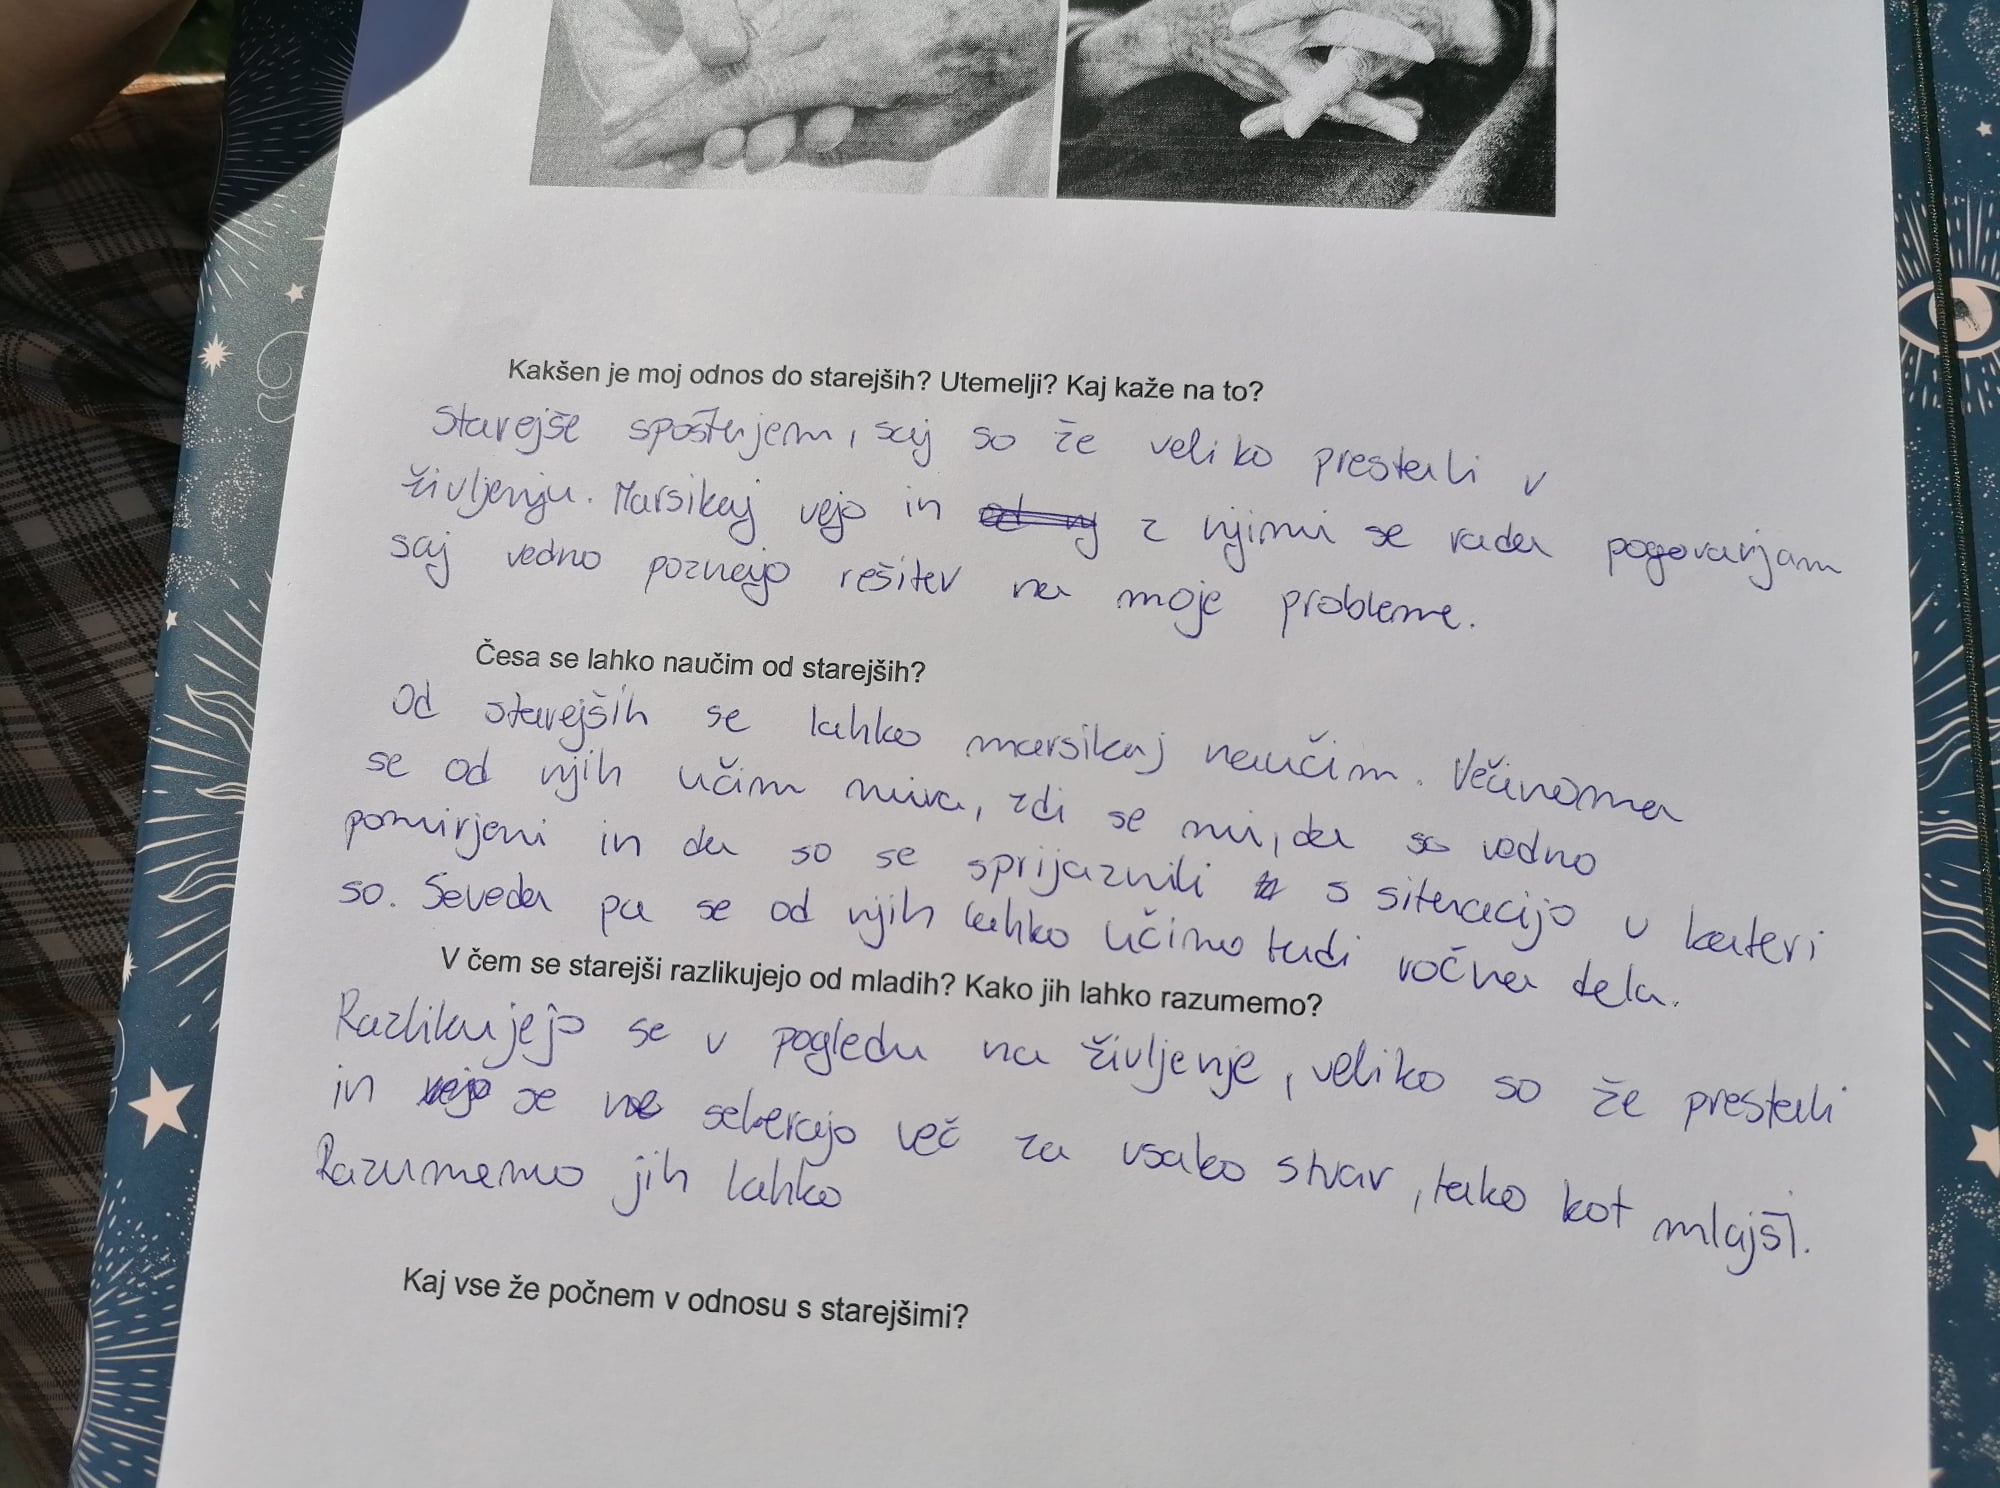 Kakšen je moj odnos do starejših? Utemelji? Kaj kaže na to?
Starejše spoštujem, saj so že veliko prestali v
življenju. Marsikaj vejo in z njimi se rada pogovarjam
saj vedno poznajo rešitev na moje probleme.
Česa se lahko naučim od starejših?
Od starejših se lahko marsikaj naučim. Večinoma
se od njih učim mira, zdi se mi, da so vedno
pomirjeni in da so se sprijaznili s situacijo v kateri
so. Seveda pa se od njih lahko učimo tudi ročna dela.
V čem se starejši razlikujejo od mladih? Kako jih lahko razumemo?
Razlikujejo se v pogledu na življenje, veliko so že prestali
in se ne sekerajo več za vsako stvar, tako kot mlajši.
Razumemo jih lahko
Kaj vse že počnem v odnosu s starejšimi?